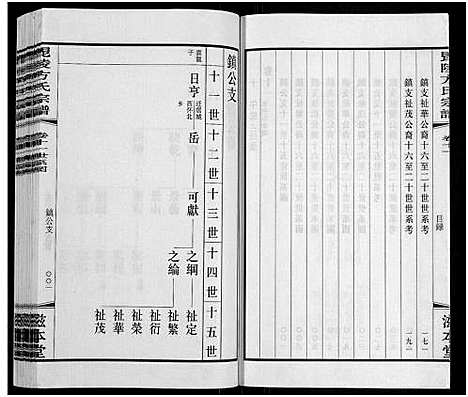 毘陵方氏宗譜
卷十一
目錄
滋本堂
鎮支祉華公裔十六至二十世世系考
一七一
鎮支祉茂公裔十六至二十世世系考
一九一
鎮公支
十一世 十二世 十三世 十四世 十五世
日亨
岳
可獻
之綱
之綸
祉定
祉繁
祉衍
祉榮
祉華
祉茂
毘陵方氏宗譜
卷十一 世系圖
鎮公支
〇〇一
滋本堂